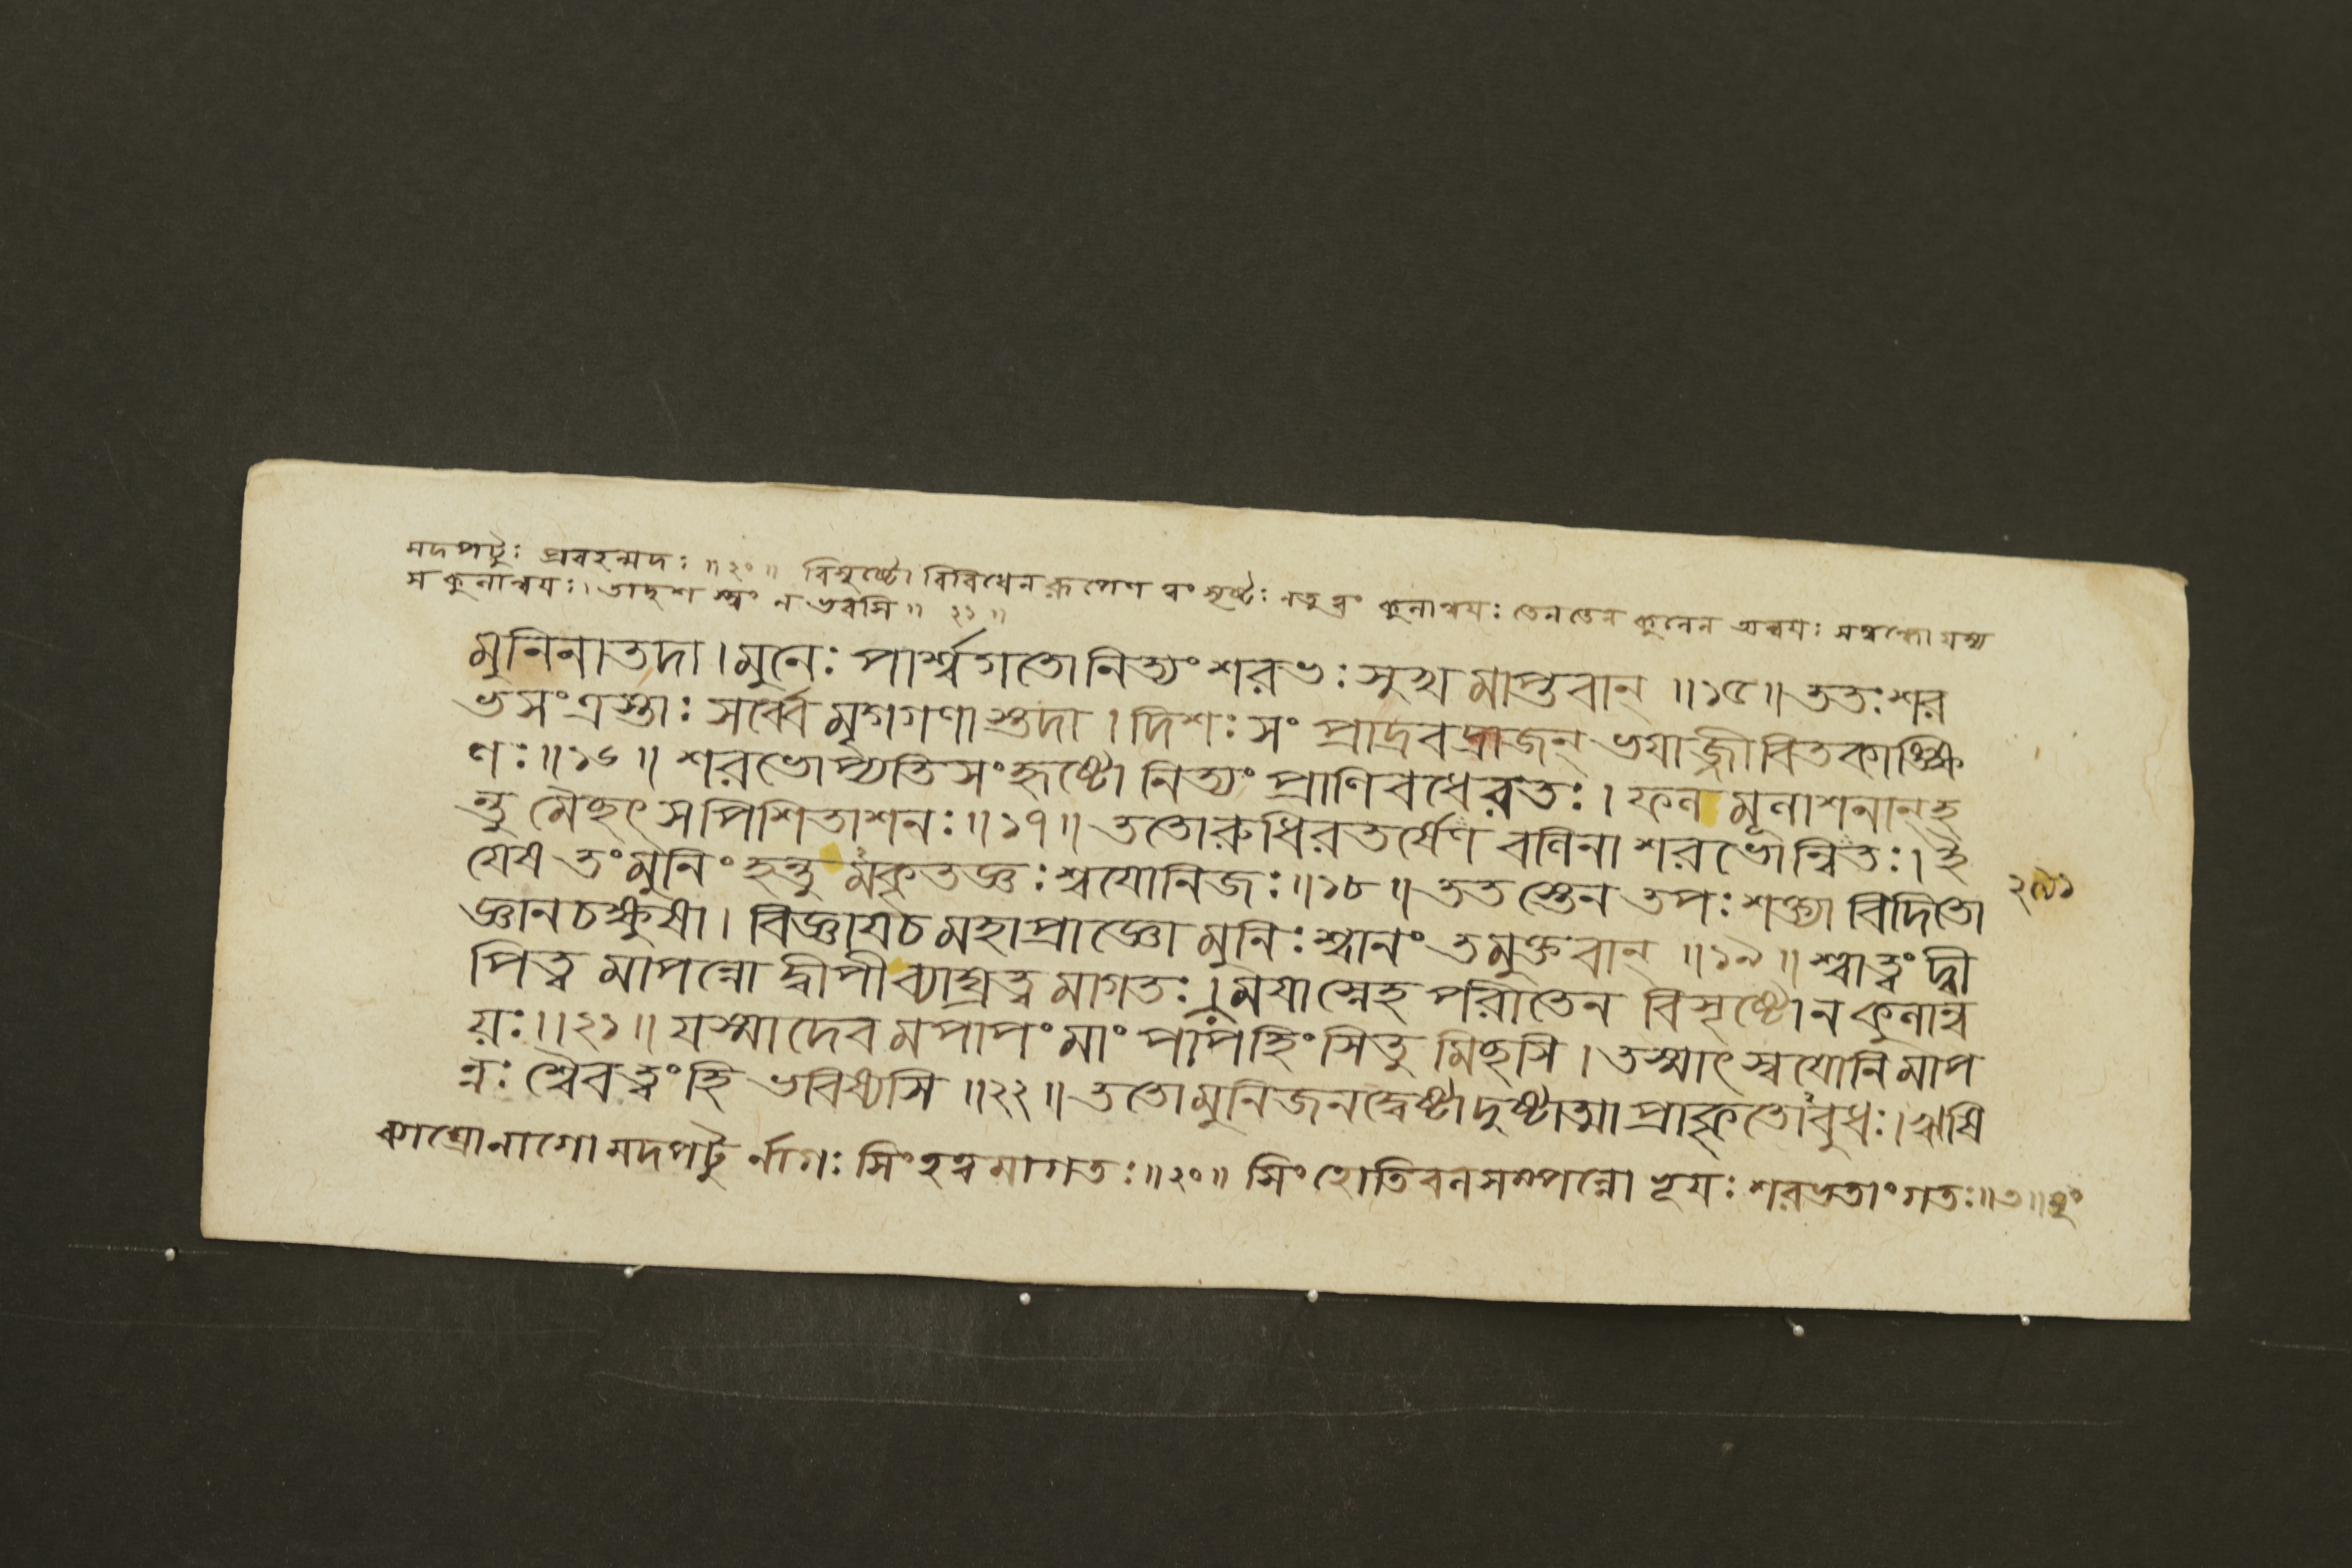 মদপটুঃ প্রবহন্মদঃ ॥ ২০ ॥ বিসৃষ্টো বিবিধেন রূপেণ ত্বং সৃষ্টঃ নতু ত্বং কুলান্বয়ঃ তেন তেন কুলেন অন্বয়ঃ সম্বন্ধো যস্য
স কুলান্বয়ঃ । তাদৃশ স্ত্বং ন ভবসি ॥ ২১ ॥
মুনিনা তদা । মুনেঃ পার্শ্ব গতো নিত্যং শরভঃ সুখ মাপ্তবান্ ॥ ১৫ ॥ ততঃ শর
ভ সংত্রস্তাঃ সর্ব্বে মৃগগণা স্তদা । দিশঃ সং প্রাদ্রবদ্রাজন্ ভয়াজ্জীবিতকাঙ্ক্ষি
ণঃ ॥ ১৬ ॥ শরভোপ্যতি সংহৃষ্টো নিত্যং প্রাণি বধে রতঃ । ফল মূলাশনান্ হ
ন্তু মৈছৎ স পিশিতাশনঃ ॥ ১৭ ॥ ততো রুধির তর্ষেণ বলিনা শরভোন্বিতঃ । ই
যেষ তং মুনিং হন্তু মকৃতজ্ঞঃ শ্বযোনিজঃ ॥ ১৮ ॥ তত স্তেন তপঃ শক্ত্যা বিদিতো
২৭১
জ্ঞানচক্ষুষা । বিজ্ঞায় চ মহাপ্রাজ্ঞো মুনিঃ শ্বানং তমুক্তবান্ ॥ ১৯ ॥ শ্বা ত্বং দ্বী
পিত্ব মাপন্নো দ্বীপী ব্যাঘ্রত্ব মাগতঃ । ময়া স্নেহ পরীতেন বিসৃষ্টো ন কুলান্ব
য়ঃ ॥ ২১ ॥ যস্মাদেব মপাপং মাং পাপ হিংসিতু মিছসি । তস্মাৎ স্বযোনি মাপ
ন্নঃ শ্বৈব ত্বং হি ভবিষ্যসি ॥ ২২ ॥ ততো মুনিজনদ্বেষ্টা দুষ্টাত্মা প্রাকৃতোবুধঃ । ঋষি
ব্যাঘ্রো নাগো মদপটু র্নাগঃ সিংহত্ব মাগতঃ ॥ ২০ ॥ সিংহোতিবলসম্পন্নো ভূয়ঃ শরভতাং গতঃ ॥